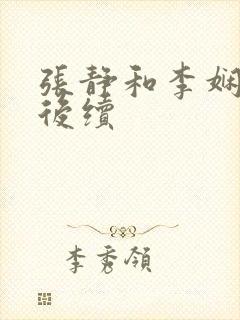 張靜和李娴
後續
李秀領